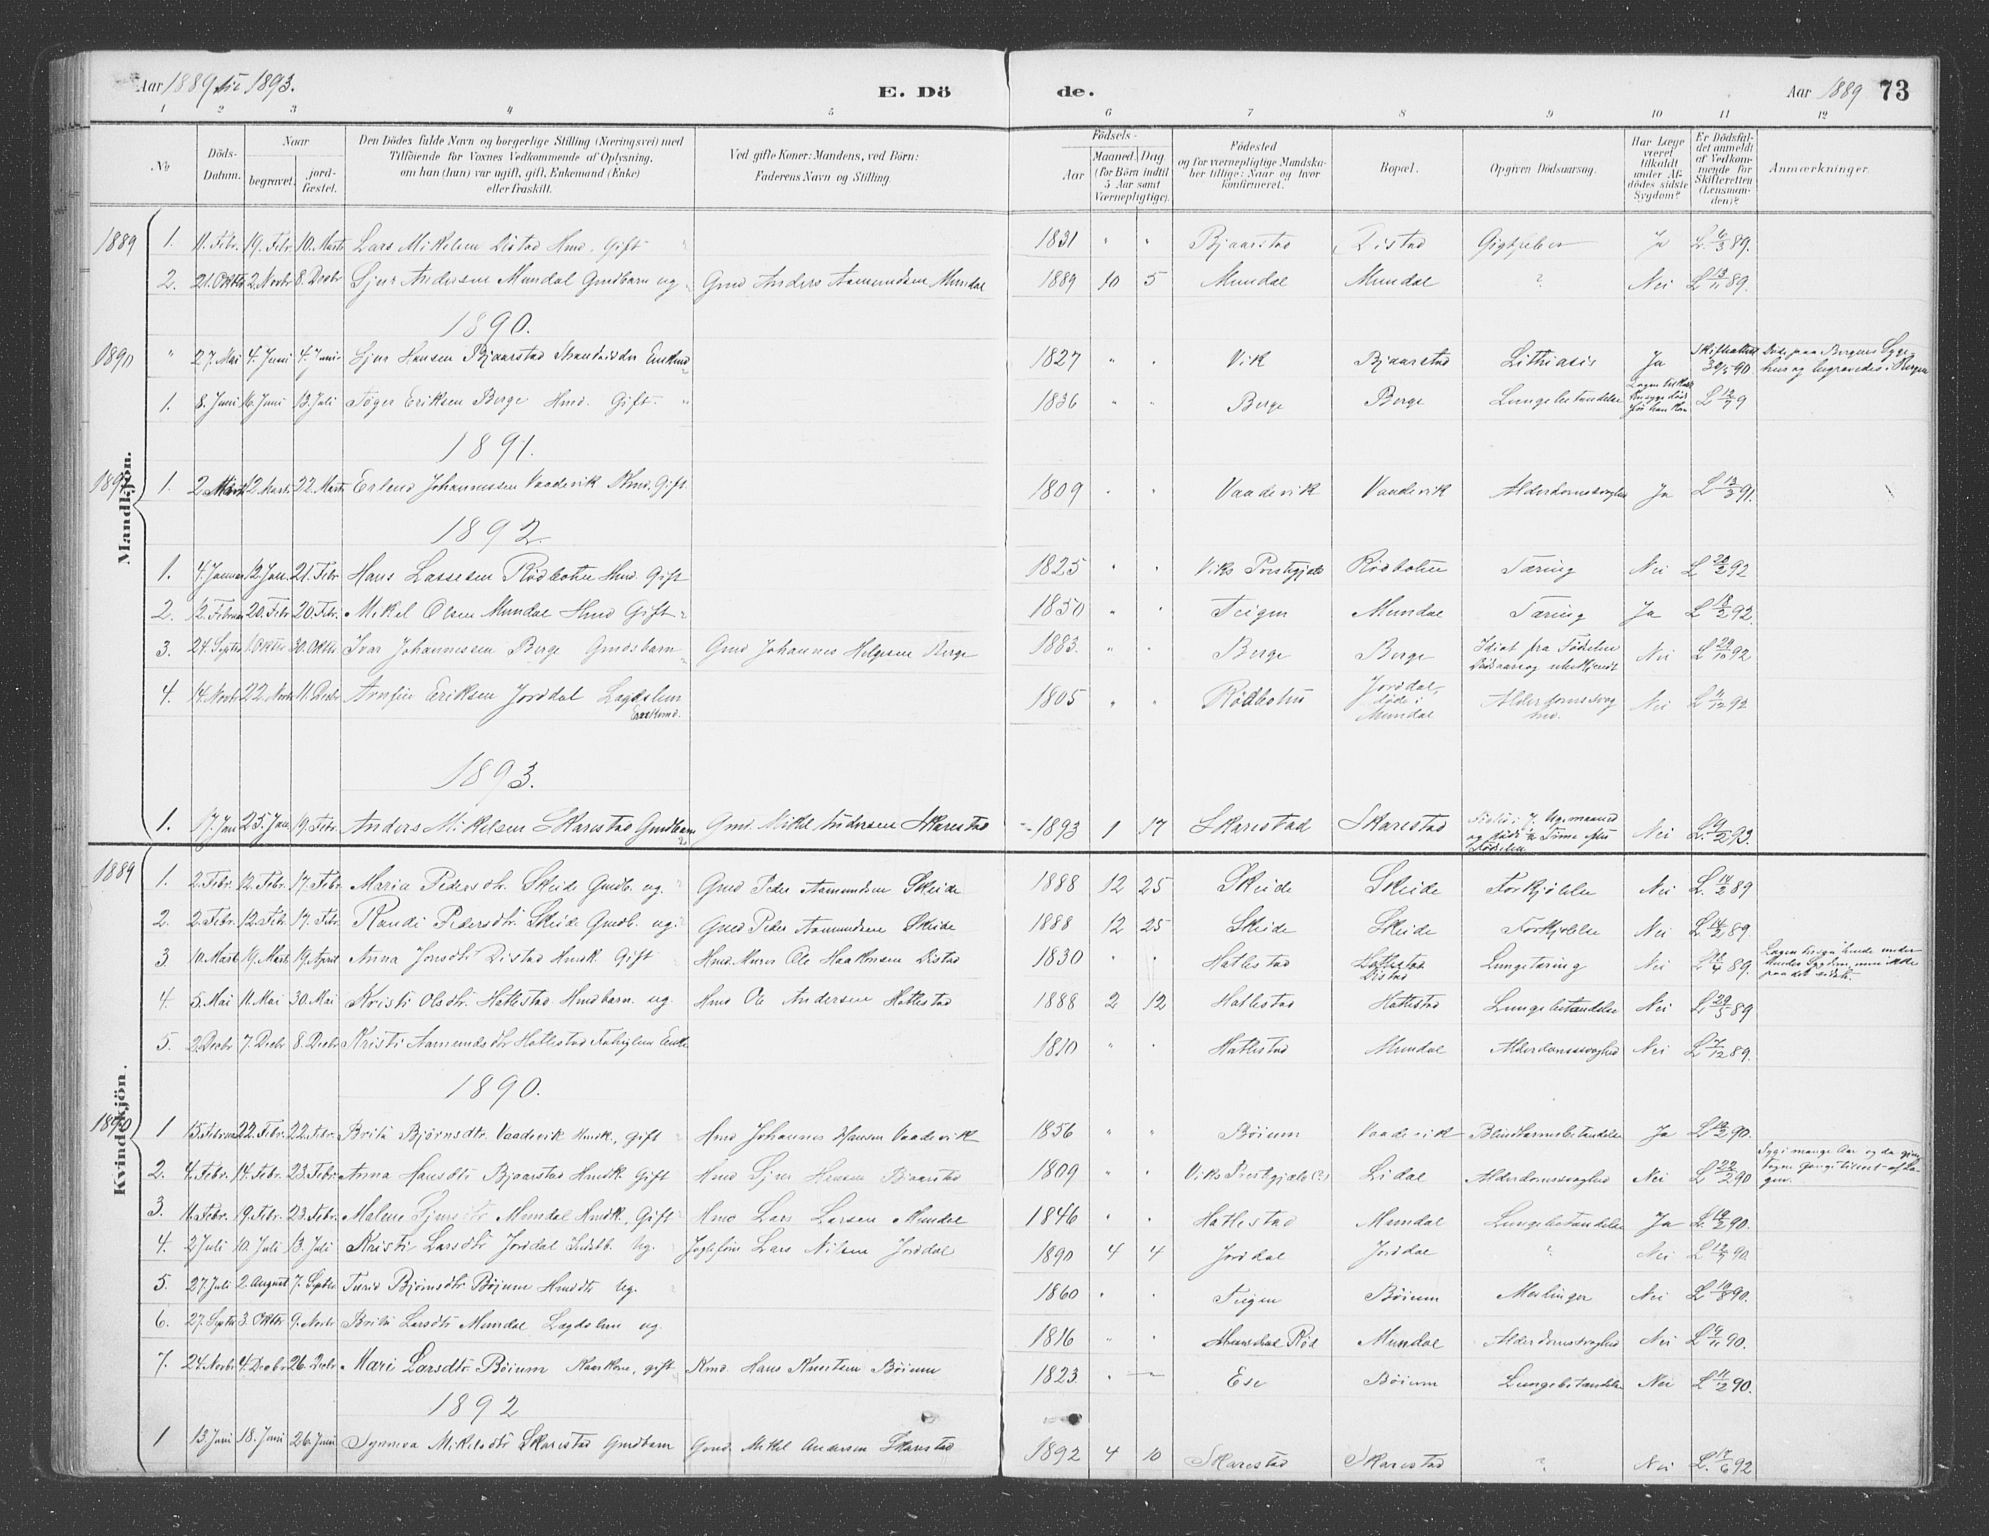 Aar 1889 til 1893.
E. Dö de.
Aar 1889 73
1 2 3 4 5 6 7 8 9 10 11 12
No
Döds-Datum.
Naar
begravet. jordfæstet.
Den Dödes fulde Navn og borgerlige Stilling (Næringsvei) med
Tilföiende for Voxnes Vedkommende af Oplysning,
om han (hun) var ugift, gift, Enkemand (Enke)
eller fraskilt.
Ved gifte Koner: Mandens, ved Börn:
Faderens Navn og Stilling.
Födsels-
Aar Maaned. Dag
(for Börn indtil
5 Aar samt
Værnepligtige).
Födested
og for værnepligtige Mandska-
ber tillige: Naar og hvor
konfirmeret.
Bopæl.
Opgiven Dödsaarsag.
Har Læge
været
tilkaldt
under Af-
dödes sidste
Sygdom?
Er Dödsfal-
det anmeldt
af Vedkom-
mende for
Skifteretten
(Lensman-
den)?
Anmærkninger.
Mandkjön.
1889 1. 11. Febr. 19. Febr. 10. Marts Lars Mikelsen Distad Hmd. Gift 1831 " " Bjaarstad Distad Gigtfeber Ja L. 6/3 89.
2. 21. Oktbr 2. Novbr 8. Decbr Sjur Andersen Mundal Gmdbarn ug. Gmd Anders Aamundsen Mundal 1889 10 5 Mundal Mundal ? Nei L 13/11 89.
1890.
1890 " 27. Mai 4. Juni 4. Juni Sjur Hansen Bjaarstad Enkmd 1827 " " Vik Bjaarstad Lithiasis Ja 30/5 90. Döde paa Bergens Syge-
hus og begravedes i Bergen
1. 8. Juni 16. Juni 13. Juli Töger Eriksen Berge Hmd. Gift " 1836 " " Berge Berge Lungebetændelse L 12/7 9
1891.
1891 1. 2. Marts 12. Marts 22. Marts Erlend Johannessen Vaadevik Hmd. Gift 1809 " " Vaadevik Vaadevik Alderdomssvaghed Ja L 12/3 91.
1892.
1. 4. Januar 12. Jan. 21. Febr Hans Lassesen Rödbotn Hmd. Gift 1825 " " Viks Prestgjæld Rödbotn Tæring Nei L 20/2 92
2. 12. Februar 20. Febr 20. Febr. Mikel Olsen Mundal Hmd Gift 1850 " " Teigen Mundal Tæring Ja L 18/2 92.
3. 24. Septbr 1. Oktbr 30. Oktbr Ivar Johannessen Berge Gmdsbarn Gmd Johannes Helgesen Berge 1883. " " Berge Berge Idiot fra Födselen
Dödsaarsag ubekjendt Nei L 29/10 92
4. 14. Novbr 22. Novbr 11. Decbr Arnfin Eriksen Jordal Lægdslem
Enkemd. 1805 " " Rödbotn Jordal,
döde i
Mundal Alderdomssvag
hed. Nei L 9/12 92
1893.
1. 17. Jan 25. Jan 19. Febr. Anders Mikelsen Skarestad Gmdbarn Gmd. Mikel Andersen Skarestad 1893 1 17 Skarestad Skarestad Födt i 7. Ugemaaned
og döde 1/2 Time efter
Födselen Nei L. 9/2 93.
Kvindekjön.
1889 1. 2. Febr. 12. Febr. 17. Febr. Maria Pedersdtr. Skeide Gmdb. ug. Gmd Peder Aamundsen Skeide 1888 12 25 Skeide Skeide Forkjölelse Nei L. 14/2 89
2. 2. Febr. 12. Febr. 17. Febr. Randi Pedersdtr. Skeide Gmdb. ug. Gmd Peder Aamundsen Skeide 1888 12 25 Skeide Skeide Forkjölelse Nei L. 14/2 89
3 10. Marts 19. Marts 19. April Anna Jonsdtr Distad Hmdk. Gift Hmd. Murer Ole Haakonsen Distad 1830 " " Hatlestad Distad Lungetæring Nei L 89. Lægen besögte hende under
hendes Sygdom, men ikke
paa det sidste.
4 5. Mai 11. Mai 30. Mai Kristi Olsdtr. Hatlestad Hmdbarn. ug. Hmd Ole Andersen Hatlestad 1888 2 12 Hatlestad Hatlestad Lungebetændelse Nei L 29/5 89
5. 2. Decbr 7. Decbr 8. Decbr Kristi Aamundsdtr Hatlestad Enke 1810 " " Hatlestad Mundal Alderdomssvaghed Nei L 17/12 89.
1890.
1890 1 15. Februar 22. Febr. 22. Febr. Brita Björnsdtr. Vaadevik Hmdk., gift Hmd Johannes Hansen Vaadevik 1856 " " Böium Vaadevik Blindtarmsbetændelse Ja L 2 90.
2. 4. Febr. 14. Febr. 23. Febr. Anna Hansdtr Bjaarstad Hmdk. Gift Hmd Sjur Hansen Bjaarstad 1809 " " Viks Prestgjæld (?) Lidal Alderdomssvaghed Nei L 22/2 90 Syg i mange Aar og da gjen-
tagne Gange tilseet af Læ-
gen.
3. 11. Febr. 19. Febr. 23. Febr. Malene Sjursdtr Mundal Hmdk., Gift Hmd Lars Larsen Mundal 1846 " " Hatlestad Mundal Lungebetændelse Ja L. 2 90.
4. 2 Juli 10. Juli 13. Juli Kristi Larsdtr Jordal Indstb. Ug. Lars Nilsen Jordal 1890 4 4 Jordal Jordal ? Nei L 12/7 90.
5. 27. Juli 2. August 7. Septbr Turid Björnsdtr Böium Hmddtr Ug. 1860 " " Teigen Böium Meslinger Nei L 10/8 90.
6. 27. Septbr 3. Oktbr 9. Novbr Brita Larsdtr Mundal Lægdslem ug. 1816 " " Mundal Alderdomssvaghed Nei L 9/11 90.
7. 24. Novbr 4. Decbr 26. Decbr Mari Larsdtr Böium Kaarkone, gift Kmd. Hans Knutsen Böium 1823 " " Ese Böium Lungebetændelse Nei L 11/12 90.
1892
1 13. Juni 18. Juni 26. Juni Synneva Mikelsdtr Skarestad Gmdbarn Gmd. Mikel Andersen Skarestad 1892 4 10 Skarestad Skarestad ? Nei L. 17/6 92